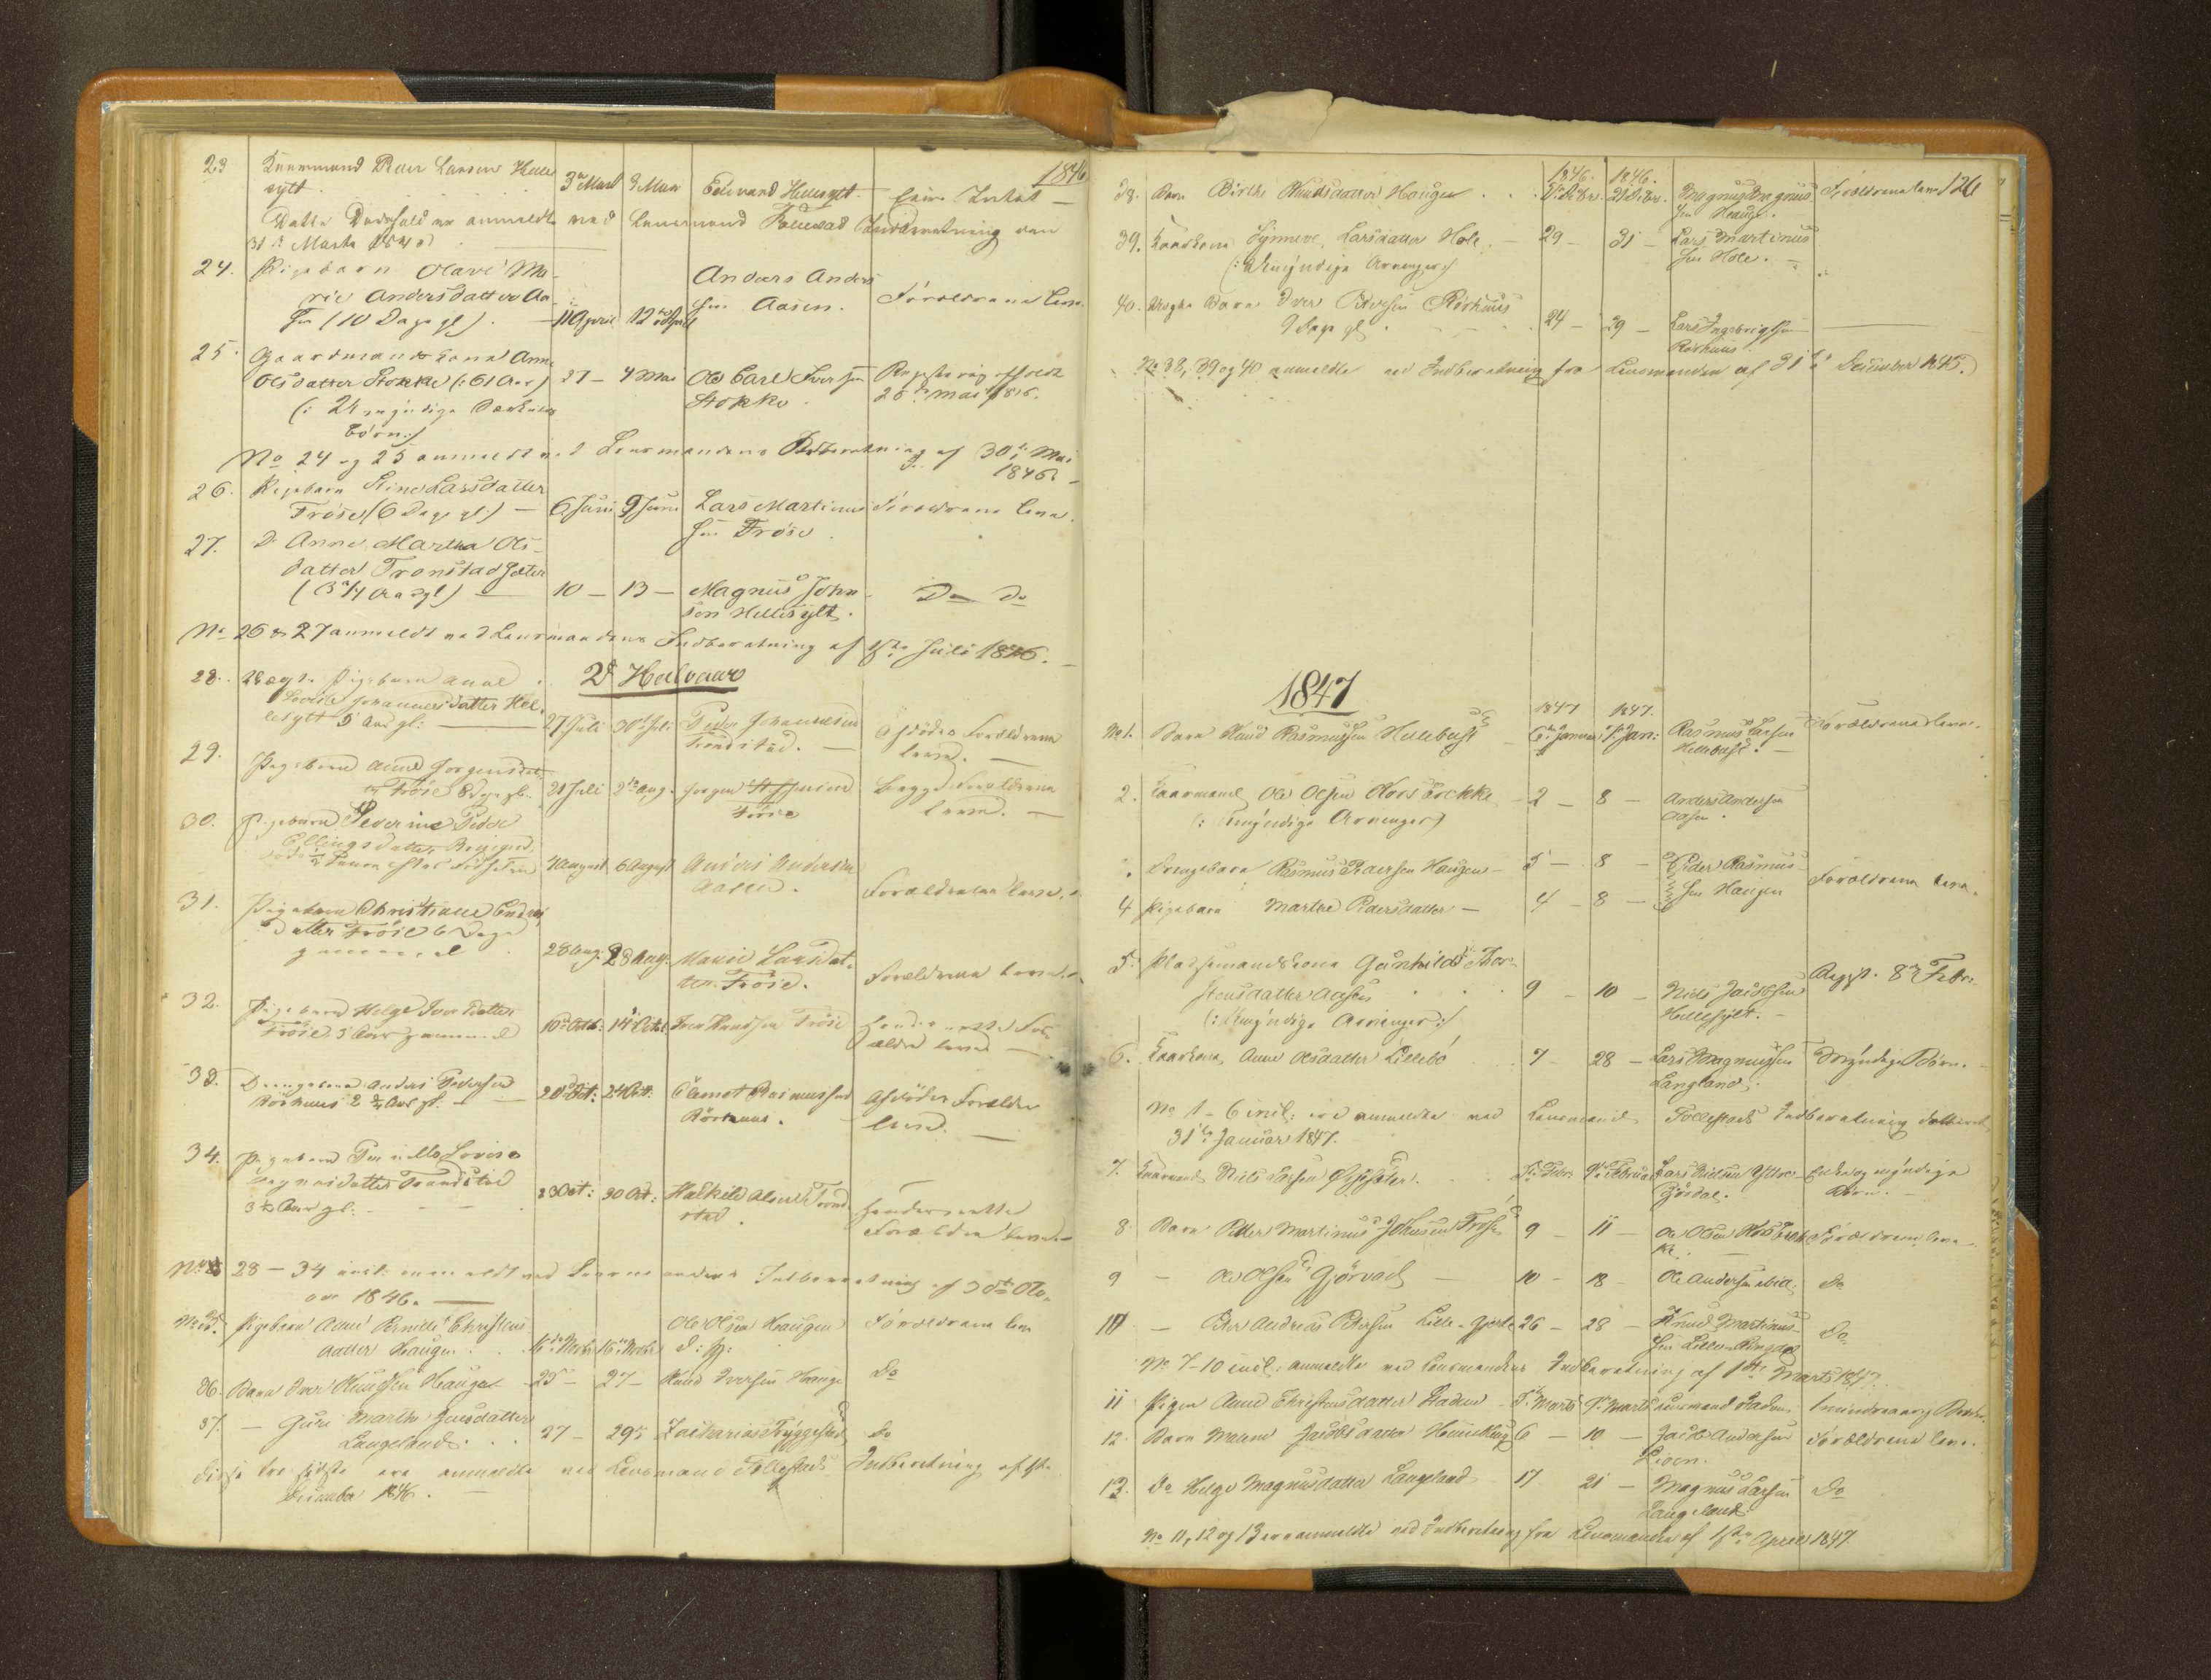 1846
23 Kaarmand Peder Larsen Helle
sylt. 3de Marts 9 Marts Edevard Hellesylt. Ejer Intet —
Dette Dødsfald er anmeldt ved Lensmand Tollestad Indberetning den
31te Marts 1846
24. Pigebarn Olave Ma-
rie Andersdatter Aa-
sen (10 Dage gl.) . — 11 April 12 April Anders Anders
sen Aasen. Forældrene leve.
25. Gaardmandskone Anne
Olsdatter Stokke (: 61 Aar) 27 — 4 Mai Ole Carl Iversen
Stokke. Registrering afholdt
26de Mai 1846.
(: 2 umyndige
børn :)
No 24 og 25 anmeldt ved Lensmandens Indberetning af 30te Mai
1846. —
26. Pigebarn Stine Larsdatter
Frøse (6 Dage gl.) — 6 Juni 9 Juni Lars Martinus
sen Frøse. Forældrene leve.
27. Do Anne Martha Ols-
datter Tronstad Sæter
(3/4 Aar gl.) — 10 — 13 — Magnus John
sen Hellesylt. Do Do
No 26 & 27 anmeldt ved Lensmandens Indberetning af 1ste Juli 1846. —
2det Halvaar
28. Pigebarn Anne
Lovise Johannesdatter Hel-
lesylt 5 Aar gl. — 27 Juli 30te Juli Peder Johannesen
Tronstad. — Afdødes Forældrene
leve. —
29. Pigebarn Anne Jørgensdat-
ter Frøse 8 Dage gl. 28 Juli 2de Aug. Jørgen Steffensen
Frøse Begge Forældrene
leve. —
30. Pigebarn Severine Pedor
Ellingsdatter
4 August 6 August Anders Andersen
Aasen. Forældrene leve.
31. Pigebarn Christiane
datter Frøse 6 Dage
gammel 28 Aug. 28 Aug. Marie Larsdat-
ter Frøse. Forældrene leve.
32. Pigebarn Helge Iversdatter
Frøse 3 Aar gammel 10de Octb: 14 Octb: Iver Knudsen Frøse Hendes Forældre leve —
33. Drengebarn Anders Pedersen
Rørhuus 2 Aar gl. — 20 Oct: 24 Oct: Rasmussen
Rørhuus. Afdødes Forældre
leve. —
34. Pigebarn Pernille Lovise
Magnusdatter Tronstad
3 Aar gl. — 23 Oct: 30 Oct: Halkild Olsen Tron-
stad. Hendes
Forældre leve —
No 28 — 34 incl: anmeldt ved Lensmandens Indberetning af 30te Octo-
ber 1846. —
No 35. Pigebarn Anne Pernille Christens
datter Haugen . . 16de Novbr 16de Novbr Ole Olsen Haugen Forældrene leve
36. Barn Iver Knudsen Hauge 25 — 27 — Knud Iversen Hauge Do
37. — Guri Marthe Jensdatter
Langeland. . . 27 — 29 Zacharias Tryggestad Do
Disse tre sidste ere anmeldte ved Lensmand Tollestads Indberetning af 1ste
December 1846. —
1846. 1846. 126
38. Barn Birthe Knudsdatter Haugen . . . 21 Decbr. Magnus Magnus-
sen Hauge. Forældrene leve
39. Kaarkone Synneve Larsdatter Hole. — 29 — 31 — Lars Martinus
sen Hole. —
(: Umyndige Arvinger :)
40. Barn Iver Petersen Rørhuus
9 Dage gl. 24 — 29 — Lars Ingebrigtsen
Rørhuus.
No 38, 39 og 40 anmeldte ved Indberetning fra Lensmanden af 31te December 1846.
1847
1847 1847.
No 1. Barn Knud Rasmussen Hellebust — 6te Januar 7de Jan: Rasmus Larsen
Hellebust. — Forældrene leve.
2. Kaarmand Ole Olsen — 2 — 8 — Anders Andersen
Aasen.
(: umyndige Arvinger)
Drengebarn Rasmus Pedersen Haugen — 5 — 8 — Peder Rasmus-
sen Haugen Forældrene leve.
4 Pigebarn Marthe Pedersdatter — 4 — 8 —
5. Pladsmandskone Gunhild Thor-
stensdatter Aasen . . . 9 — 10 — Niels Jacobsen
Hellesylt. — Regst. 8de Febr.
(: Umyndige Arvinger :)
6. Kaarkone Anne Olsdatter Lillebø . 7 — 28 — Lars Magnussen
Langeland. Myndige Børn. —
No 1 — 6 incl: ere anmeldte ved Lensmand Tollestads Indberetning dateret
31te Januar 1847.
7. Kaarmand Niels Larsen . . 9de Februar Lars Nielsen Enke og myndige
Børn. —
8 Barn Peter Martinus Johnsen Frøse 9 — 11 — Ole Olsen
Forældrene leve —
9 — Ole Olsen Gjørvad — 10 — 18 — Ole Andersen ibid. Do
10 — Peter Andreas Petersen Lille- 26 — 28 — Knud Martinus-
sen Lille Do
No 7–10 incl: anmeldte ved Lensmandens Indberetning af 1ste Marts 1847.
11 Pigen Anne Christensdatter — Marts 9de Marts 1 mindreaarig Broder.
12. Barn Malene Jacobsdatter 6 — 10 — Jacob Andersen
Lien. Forældrene leve.
13. Do Helge Magnusdatter Langeland 17 21 — Magnus Larsen
Langeland. Do
No 11, 12 og 13 ere anmeldte ved Indberetning fra Lensmanden af 1ste April 1847.